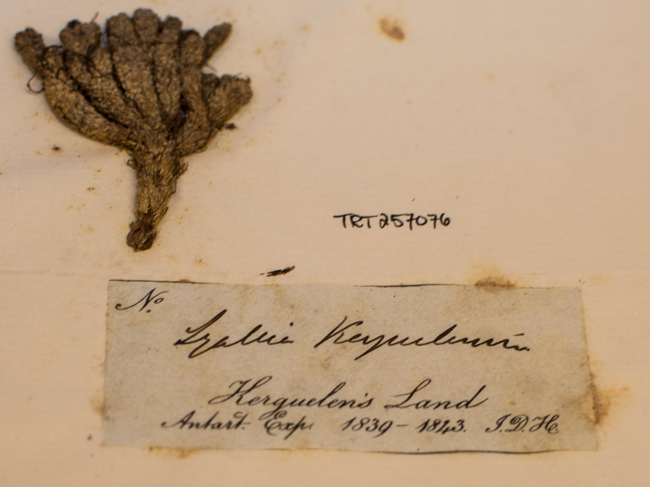 TRT257076
No.
Lyallia Kerguelensis
Kerguelen's Land
Antart. Exp. 1839-1843. J.D.H.